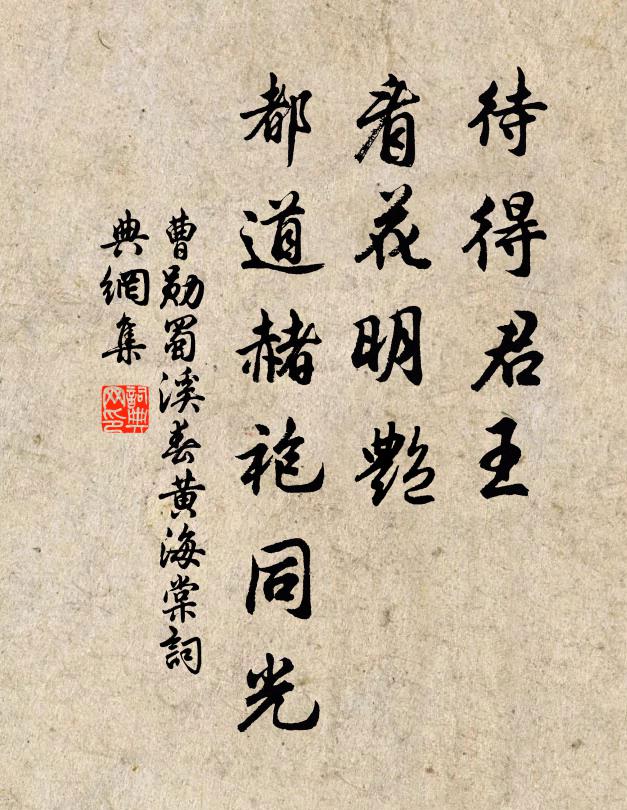 待得君王
看花明艷
都道赭袍同光
曹勛蜀溪春黃海棠詞
典網集
詞典網印